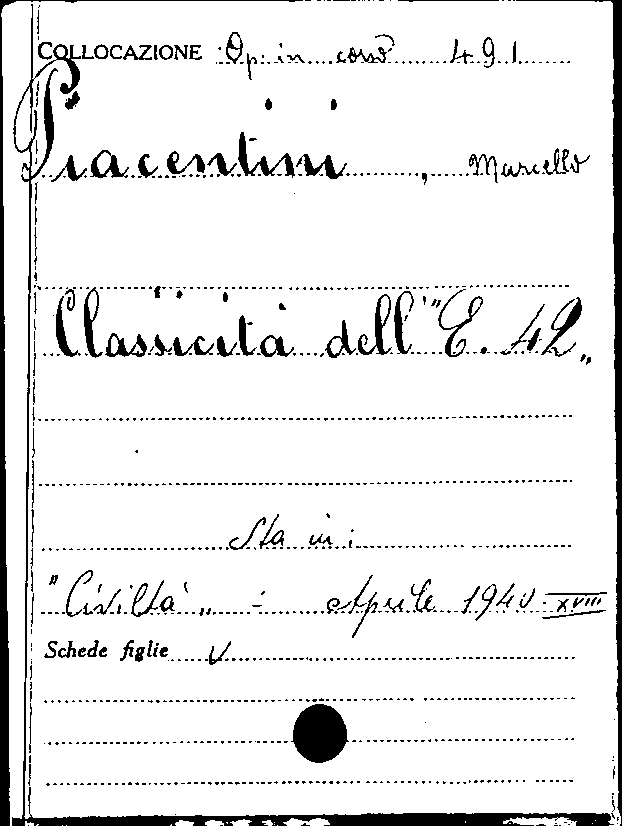 COLLOCAZIONE Op. in corso 491
Piacentini, Marcello
Classicità dell'"E. 42„
Sta in:
"Civiltà„ - Aprile 1940 XVIII
Schede figlie V